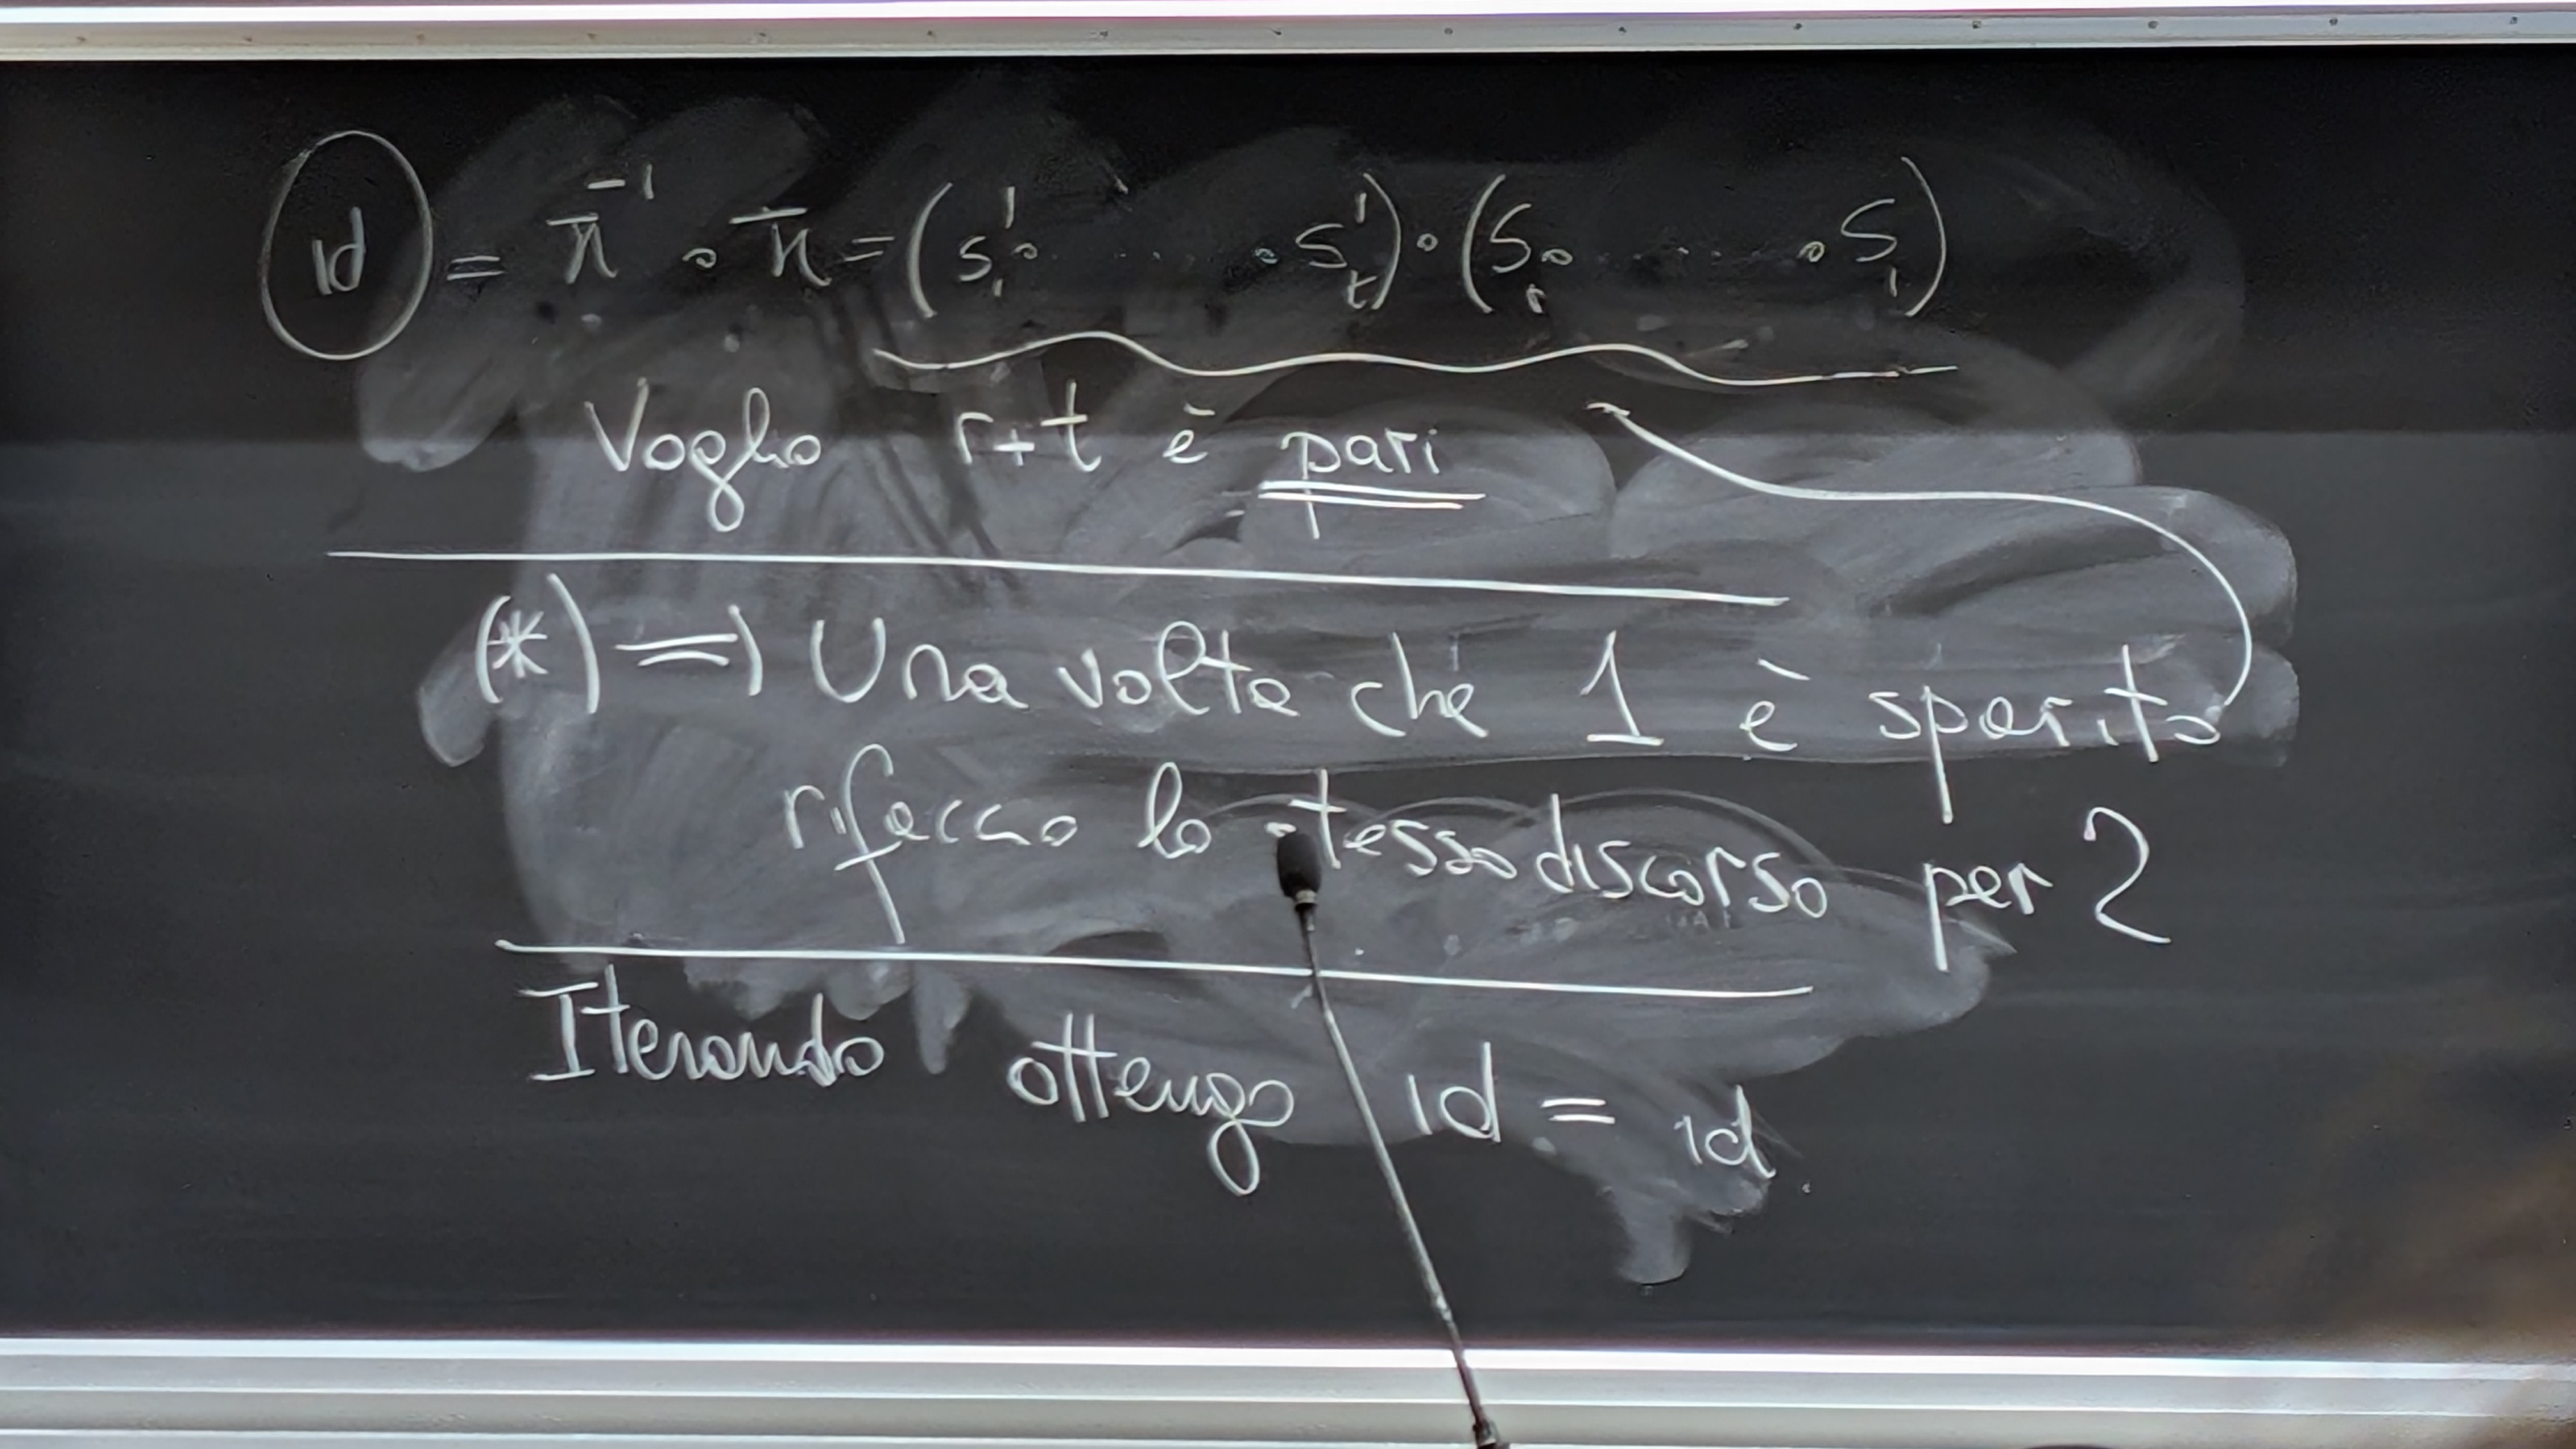 id = π⁻¹ ∘ π = (S'₁ ∘ ... ∘ S'ₜ) ∘ (Sᵣ ∘ ... ∘ S₁)
Voglio r+t è pari
(*) ⇒ Una volta che 1 è sparito
rifaccio lo stesso discorso per 2
Iterando ottengo id = id